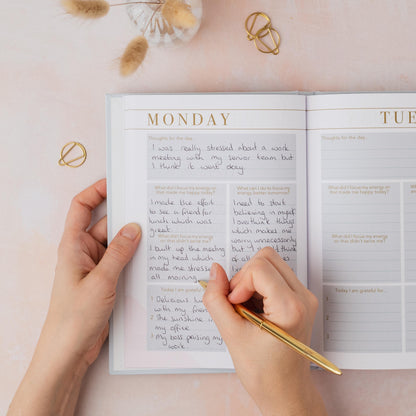 MONDAY
Thoughts for the day...
I was really stressed about a work
meeting with my senior team but
I think it went okay.
What did I focus my energy on
that made me happy today?
I made the effort
to see a friend for
lunch which was
great.
What did I focus my energy
on that didn't serve me?
I built up the meeting
in my head which
made me stressed
all morning
What can I do to focus my
energy better tomorrow?
I need to start
believing in myself
I overthink things
which makes me
worry unnecessarily
but I
Today I am grateful for...
1 Delicious
2 The sunshine
my office
3 My boss praising my
work.
TUE
Thoughts for the day...
What did I focus my energy on
that made me happy today?
What did I focus my energy
on that didn't serve me?
Today I am grateful for...
1
2
3